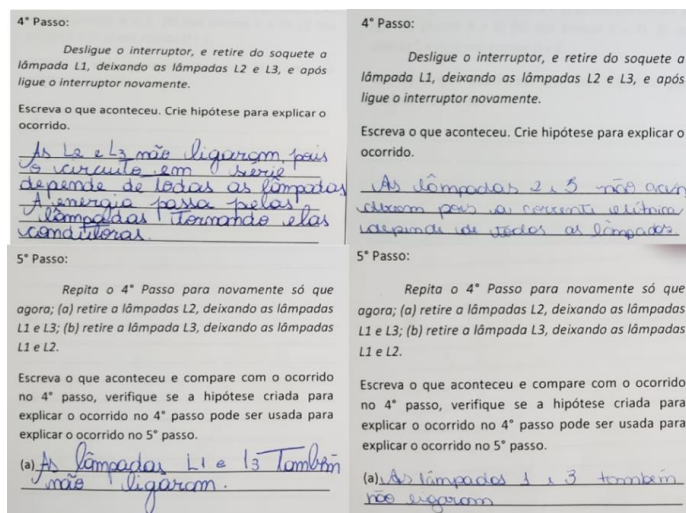 4° Passo:
Desligue o interruptor, e retire do soquete a
lâmpada L1, deixando as lâmpadas L2 e L3, e após
ligue o interruptor novamente.
Escreva o que aconteceu. Crie hipótese para explicar o
ocorrido.
As L2 e L3 não ligaram, pois
o circuito em serie
depende de todas as lâmpadas
A energia passa pelas
lâmpadas tornando elas
condutoras.
5° Passo:
Repita o 4° Passo para novamente só que
agora; (a) retire a lâmpadas L2, deixando as lâmpadas
L1 e L3; (b) retire a lâmpada L3, deixando as lâmpadas
L1 e L2.
Escreva o que aconteceu e compare com o ocorrido
no 4° passo, verifique se a hipótese criada para
explicar o ocorrido no 4° passo pode ser usada para
explicar o ocorrido no 5° passo.
(a) As lâmpadas L1 e l3 Também
não ligaram.
4° Passo:
Desligue o interruptor, e retire do soquete a
lâmpada L1, deixando as lâmpadas L2 e L3, e após
ligue o interruptor novamente.
Escreva o que aconteceu. Crie hipótese para explicar o
ocorrido.
As lâmpadas 2 e 3 não acen
deram pois a corrente
depende de todas as lâmpadas
5° Passo:
Repita o 4° Passo para novamente só que
agora; (a) retire a lâmpadas L2, deixando as lâmpadas
L1 e L3; (b) retire a lâmpada L3, deixando as lâmpadas
L1 e L2.
Escreva o que aconteceu e compare com o ocorrido
no 4° passo, verifique se a hipótese criada para
explicar o ocorrido no 4° passo pode ser usada para
explicar o ocorrido no 5° passo.
(a) As lâmpadas 1 e 3 também
não ligaram